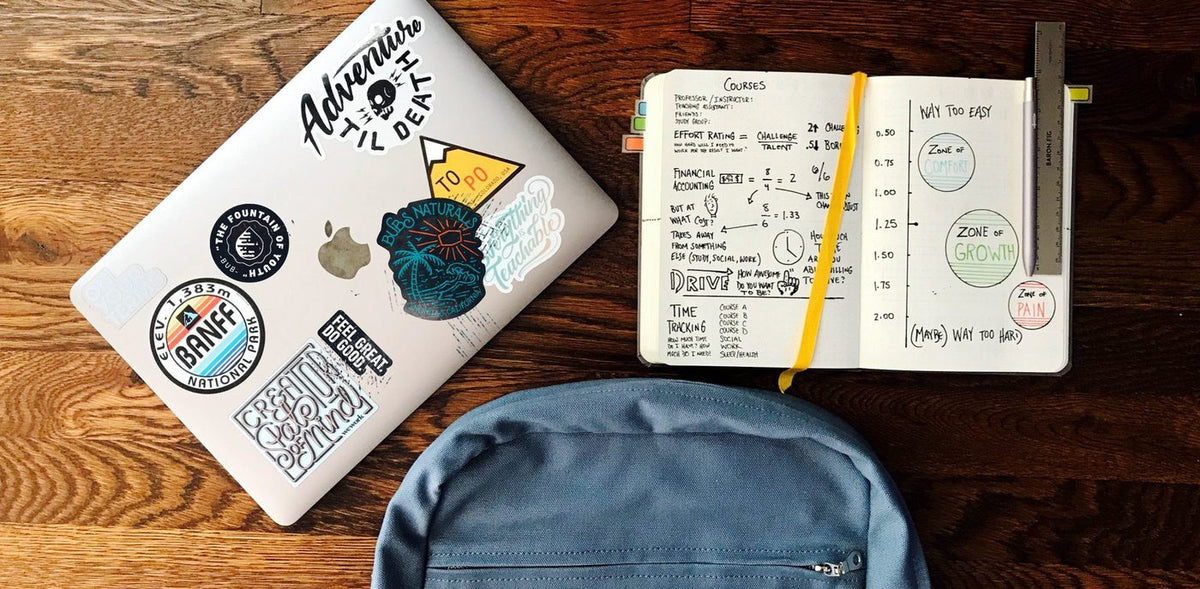 Adventure
TIL DEATH
TO PO
COLORADO, USA
"THE FOUNTAIN OF YOUTH"
·BUB·
BUBS NATURALS
CALIFORNIA
Everything
is
Teachable
ELEV. 1,383m
BANFF
NATIONAL PARK
FEEL GREAT.
DO GOOD.
CREATE
of Mind
WEWORK
COURSES
PROFESSOR / INSTRUCTOR:
TEACHING ASSISTANT:
FRIENDS:
STUDY GROUP:
EFFORT RATING = CHALLENGE
TALENT
HOW HARD WILL I NEED TO
WORK FOR THE RESULT I WANT?
2↑
.5↓
FINANCIAL
ACCOUNTING = 8
4 = 2 6/6
BUT AT
WHAT COST?
8
6 = 1.33
THIS
CHANGE
TAKES AWAY
FROM SOMETHING
ELSE (STUDY, SOCIAL, WORK)
DRIVE
HOW AWESOME
DO YOU WANT
TO BE?
TIME
TRACKING
HOW MUCH TIME
DO I HAVE? HOW
MUCH DO I NEED?
COURSE A
COURSE B
COURSE C
COURSE D
SOCIAL
WORK
SLEEP/HEALTH
WAY TOO EASY
0.50
0.75
1.00
1.25
1.50
1.75
2.00
ZONE OF
COMFORT
ZONE OF
GROWTH
ZONE OF
PAIN
(MAYBE) WAY TOO HARD
BARON FIG